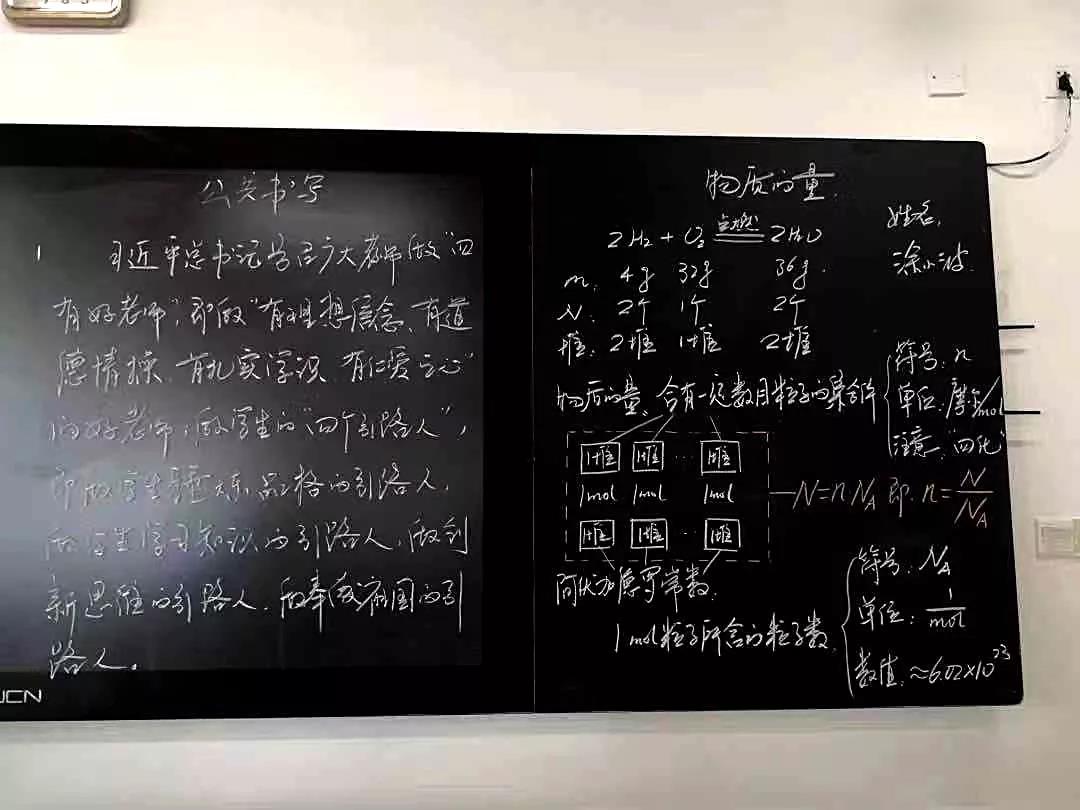 公共书写
习近平总书记号召广大教师做"四
有好老师",即做"有理想信念、有道
德情操、有扎实学识、有仁爱之心"
的好老师;做学生的"四个引路人",
即做学生锤炼品格的引路人,
做学生学习知识的引路人,做创
新思维的引路人,做奉献祖国的引
路人。
JCN
物质的量
2H₂ + O₂ 点燃 2H₂O
m: 4g 32g 36g
N: 2个 1个 2个
堆: 2堆 1堆 2堆
物质的量:含有一定数目粒子的集合体
符号:n
单位:摩尔/mol
注意:"四化"
1堆 1堆 … 1堆
1mol 1mol 1mol
1堆 1堆 … 1堆
N=n NA 即 n=N/NA
阿伏加德罗常数:
1mol粒子所含的粒子数
符号:NA
单位:1/mol
数值:≈6.02×10²³
姓名:
涂小波